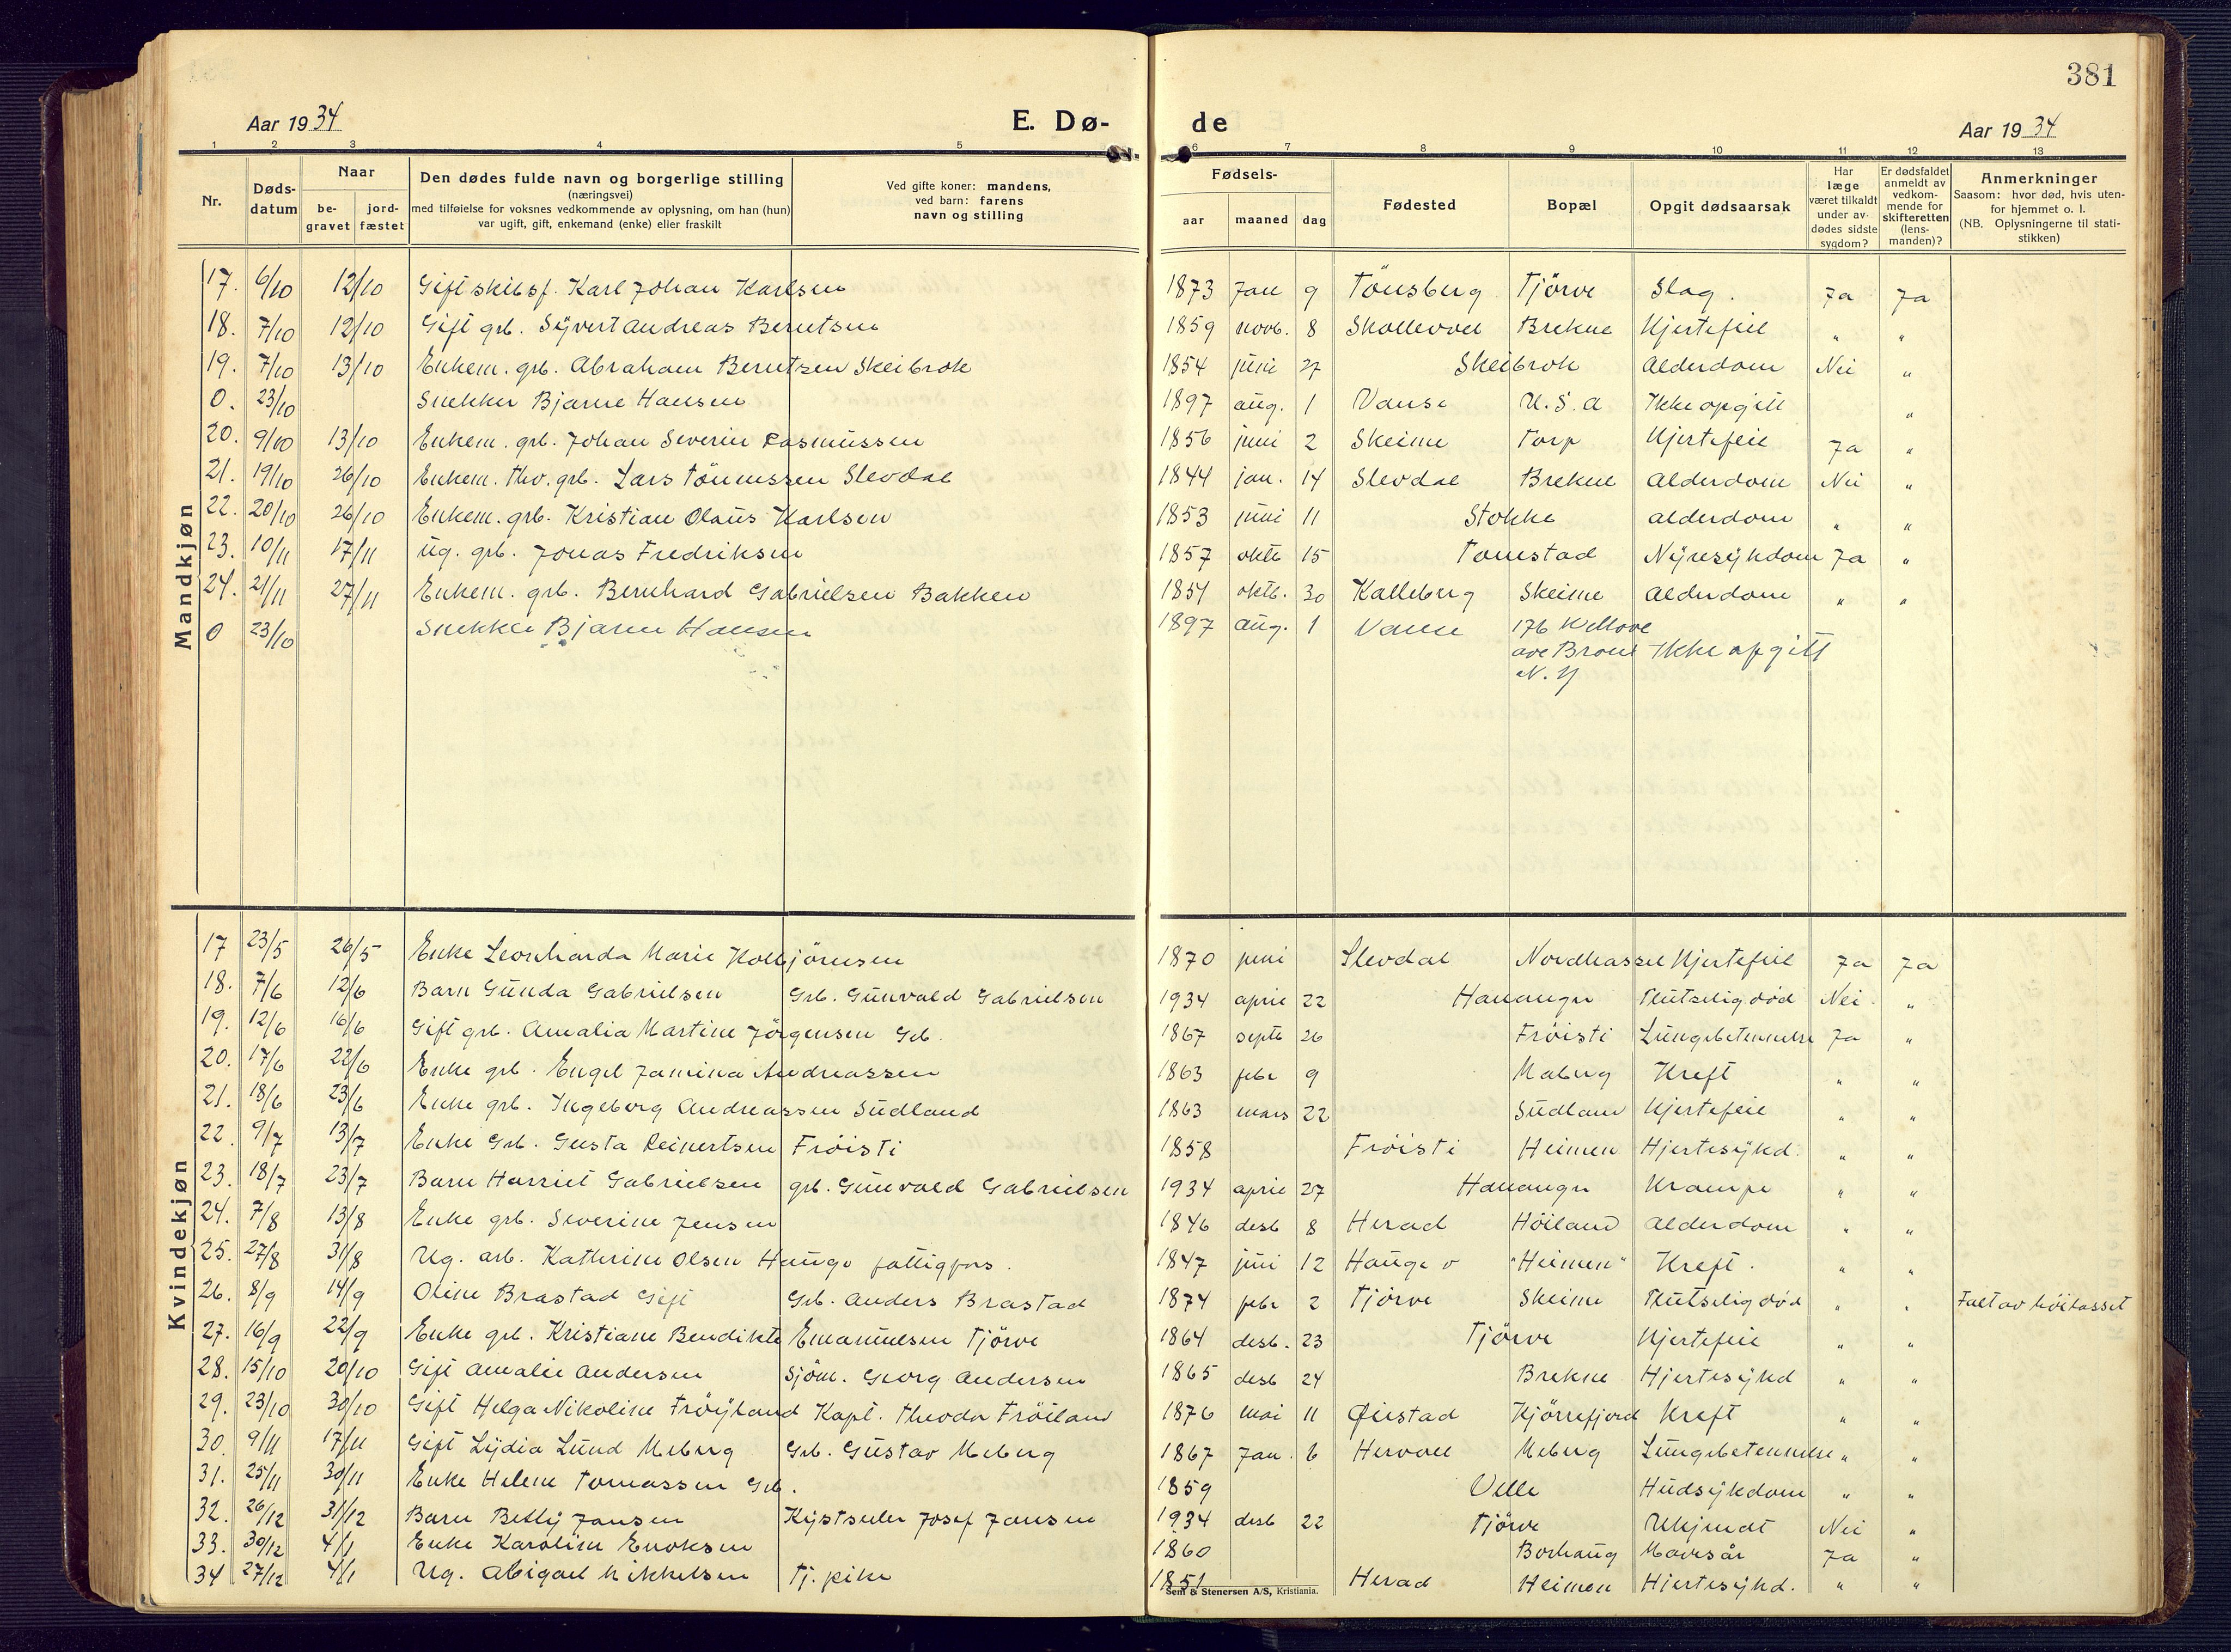 381
Aar 1934 E. Dø- de Aar 1934
1 2 3 4 5 6 7 8 9 10 11 12 13
Nr. Døds-datum Naar be-gravet jord-fæstet Den dødes fulde navn og borgerlige stilling (næringsvei) med tilføielse for voksnes vedkommende av oplysning, om han (hun) var ugift, gift, enkemand (enke) eller fraskilt Ved gifte koner: mandens, ved barn: farens navn og stilling Fødsels- aar maaned dag Fødested Bopæl Opgit dødsaarsak Har læge været tilkaldt under av-dødes sidste sygdom? Er dødsfaldet anmeldt av vedkom-mende for skifteretten (lens-manden)? Anmerkninger Saasom: hvor død, hvis uten-for hjemmet o. l. (NB. Oplysningerne til stati-stikken)
Mandkjøn
17. 6/10 12/10 Gift skibsf. Karl Johan Karlsen 1873 Jan 9 Tönsberg Tjörve Slag. Ja Ja
18. 7/10 12/10 Gift grb. Syvert Andreas Berntsen 1859 novb. 8 Skollevoll Brekne Hjertefeil " "
19. 7/10 13/10 Enkem. grb. Abraham Berntsen Skeibrok 1854 juni 27 Skeibrok Alderdom Nei "
0. 23/10 Snekker Bjarne Hansen 1897 aug. 1 Vanse U.S.A Ikke opgitt "
20. 9/10 13/10 Enkem. grb. Johan Severin Rasmussen 1856 juni 2 Skeime Torp Hjertefeil Ja "
21. 19/10 26/10 Enkem. thv. grb. Lars Tönnessen Slevdal 1844 jan. 14 Slevdal Brekne Alderdom Nei "
22. 20/10 26/10 Enkem. grb. Kristian Olaus Karlsen 1853 juni 11 Stokke alderdom " "
23. 10/11 17/11 Ug. grb. Jonas Fredriksen 1857 oktb 15 Tomstad Nyresykdom Ja "
24. 21/11 27/11 Enkem. grb. Bernhard Gabrielsen Bakken 1854 oktb. 30 Kalleberg Skeime Alderdom " "
0 23/10 Snekker Bjarne Hansen 1897 aug. 1 Vanse 176
ave N. Y Ikke opgitt
Kvindekjøn
17 23/5 26/5 Enke Leonharda Marie Kolbjörnsen 1870 juni Slevdal Nordhassel Hjertefeil Ja Ja
18. 7/6 12/6 Barn Gunda Gabrielsen Grb. Gunvald Gabrielsen 1934 april 22 Hananger Plutselig död Nei "
19. 12/6 16/6 Gift grb. Amalia Martine Jörgensen Grb. 1867 septb 26 Fröisti Lungebetennelse Ja "
20. 17/6 22/6 Enke grb. Engel Jamina Andreassen 1863 febr 9 Meberg Kreft " "
21. 18/6 23/6 Enke grb. Ingeborg Andreassen Sudland 1863 mars 22 Sudland Hjertefeil " "
22. 9/7 13/7 Enke Grb. Gusta Reinertsen Fröisti 1858 Fröisti Heimen Hjertesykd. " "
23. 18/7 23/7 Barn Harriet Gabrielsen grb. Gunvald Gabrielsen 1934 april 27 Hananger Krampe " "
24. 7/8 13/8 Enke grb. Severine Jensen 1846 desb 8 Herad Höiland Alderdom " "
25. 27/8 31/8 Ug. arb. Kathrine Olsen Hauge fattigfors. 1847 juni 12 Hauge "Heimen" Kreft. " "
26. 8/9 14/9 Oline Brastad Gift Grb. Anders Brastad 1874 febr 2 Tjörve Skeime Plutselig död " " Falt av höilasset
27. 16/9 22/9 Enke grb. Kristiane Bendikte Emanuelsen Tjörve 1864 desb. 23 Tjörve Hjertefeil " "
28. 15/10 20/10 Gift Amalie Andersen Sjöm. Georg Andersen 1865 desb 24 Brekne Hjertesykd " "
29. 23/10 30/10 Gift Helga Nikoline Fröyland Kapt. Theodor Fröiland 1876 mai 11 Øiestad Kjörrefjord Kreft " "
30. 9/11 17/11 Gift Lydia Lund Meberg Grb. Gustav Meberg 1867 Jan. 6 Hervoll Meberg Lungebetennelse " "
31. 25/11 30/11 Enke Helene Tomassen Grb. 1859 Velle Hudsykdom " "
32. 26/12 31/12 Barn Betsy Jansen Josef Jansen 1934 desb 22 Tjörve Ukjendt Nei "
33. 30/12 4/1 Enke Karoline Enoksen 1860 Borhaug Mavesår Ja "
34 27/12 4/1 Ug. Abigael Mikkelsen Tj. pike 1851 Herad Heimen Hjertesykd. " "
Sem & Stenersen A/S, Kristiania.